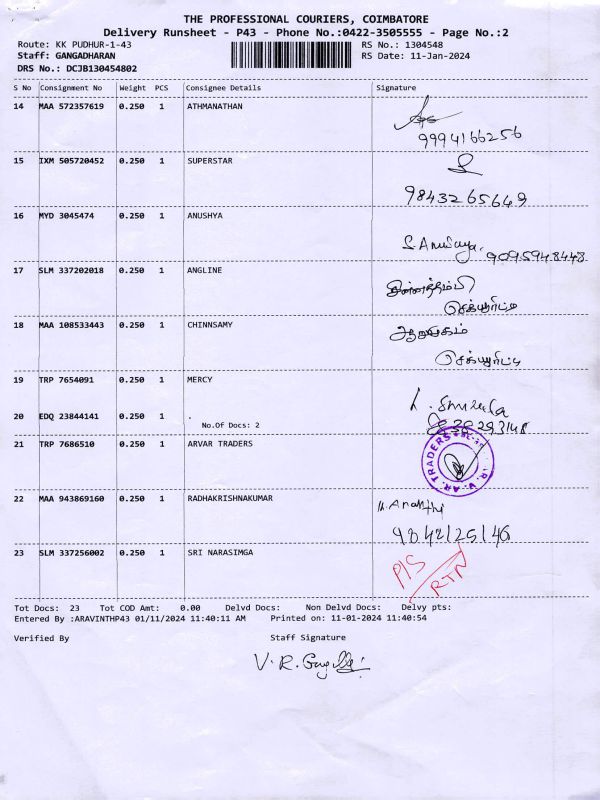 THE PROFESSIONAL COURIERS, COIMBATORE
Delivery Runsheet - P43 - Phone No.:0422-3505555 - Page No.:2
Route: KK PUDHUR-1-43 RS No.: 1304548
Staff: GANGADHARAN RS Date: 11-Jan-2024
DRS No.: DCJB130454802
S No Consignment No Weight PCS Consignee Details Signature
14 MAA 572357619 0.250 1 ATHMANATHAN
9994166256
15 IXM 505720452 0.250 1 SUPERSTAR
9843265649
16 MYD 3045474 0.250 1 ANUSHYA
S. Anusaya. 9095948443
17 SLM 337202018 0.250 1 ANGLINE
சின்னத்தம்பி
செக்யூரிட்டி
18 MAA 108533443 0.250 1 CHINNSAMY
ஆறுமுகம்
செக்யூரிட்டி
19 TRP 7654091 0.250 1 MERCY
20 EDQ 23844141 0.250 1 .
No.Of Docs: 2
21 TRP 7686510 0.250 1 ARVAR TRADERS
AR. TRADERS
22 MAA 943869160 0.250 1 RADHAKRISHNAKUMAR
9842125146
23 SLM 337256002 0.250 1 SRI NARASIMGA
P/S
RTN
Tot Docs: 23 Tot COD Amt: 0.00 Delvd Docs: Non Delvd Docs: Delvy pts:
Entered By :ARAVINTHP43 01/11/2024 11:40:11 AM Printed on: 11-01-2024 11:40:54
Verified By Staff Signature